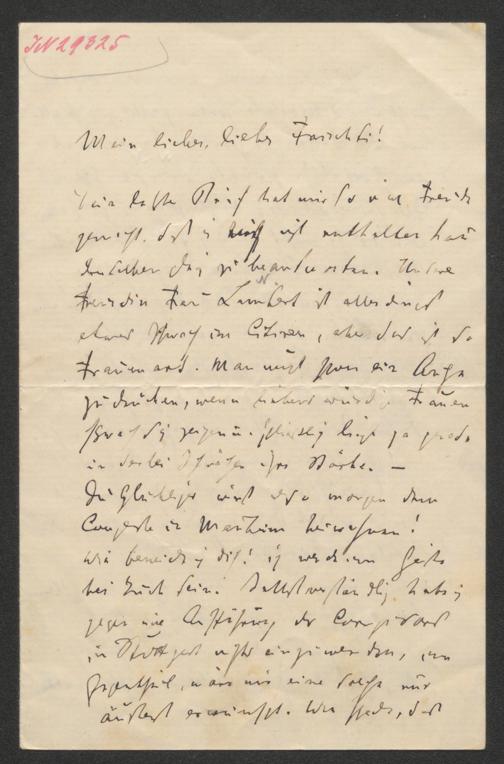 JN 29325
Mein lieber, lieber Frischki!
Dein letzter Brief hat mir so viel Freude
gemacht, daß ich mich nicht enthalten kann
denselben gleich zu beantworten. Unsere
Freundin Frau Lambert ist allerdings
etwas schwach im Citiren, aber das ist so
Frauenart. Man muß schon ein Auge
zudrücken, wenn liebenswürdige Frauen
schwach sich zeigen u. schließlich liegt ja gerade
in der Schwäche ihre Stärke. —
Du Glücklicher wirst also morgen dem
Concerte in Mannheim beiwohnen!
Wie beneide ich dich! ich werde im Geiste
bei Euch sein. Selbstverständlich habe ich
gegen eine Aufführung der
in Stuttgart nichts einzuwenden, im
Gegentheil, wäre mir eine solche nur
äußerst erwünscht. Wie schade, daß